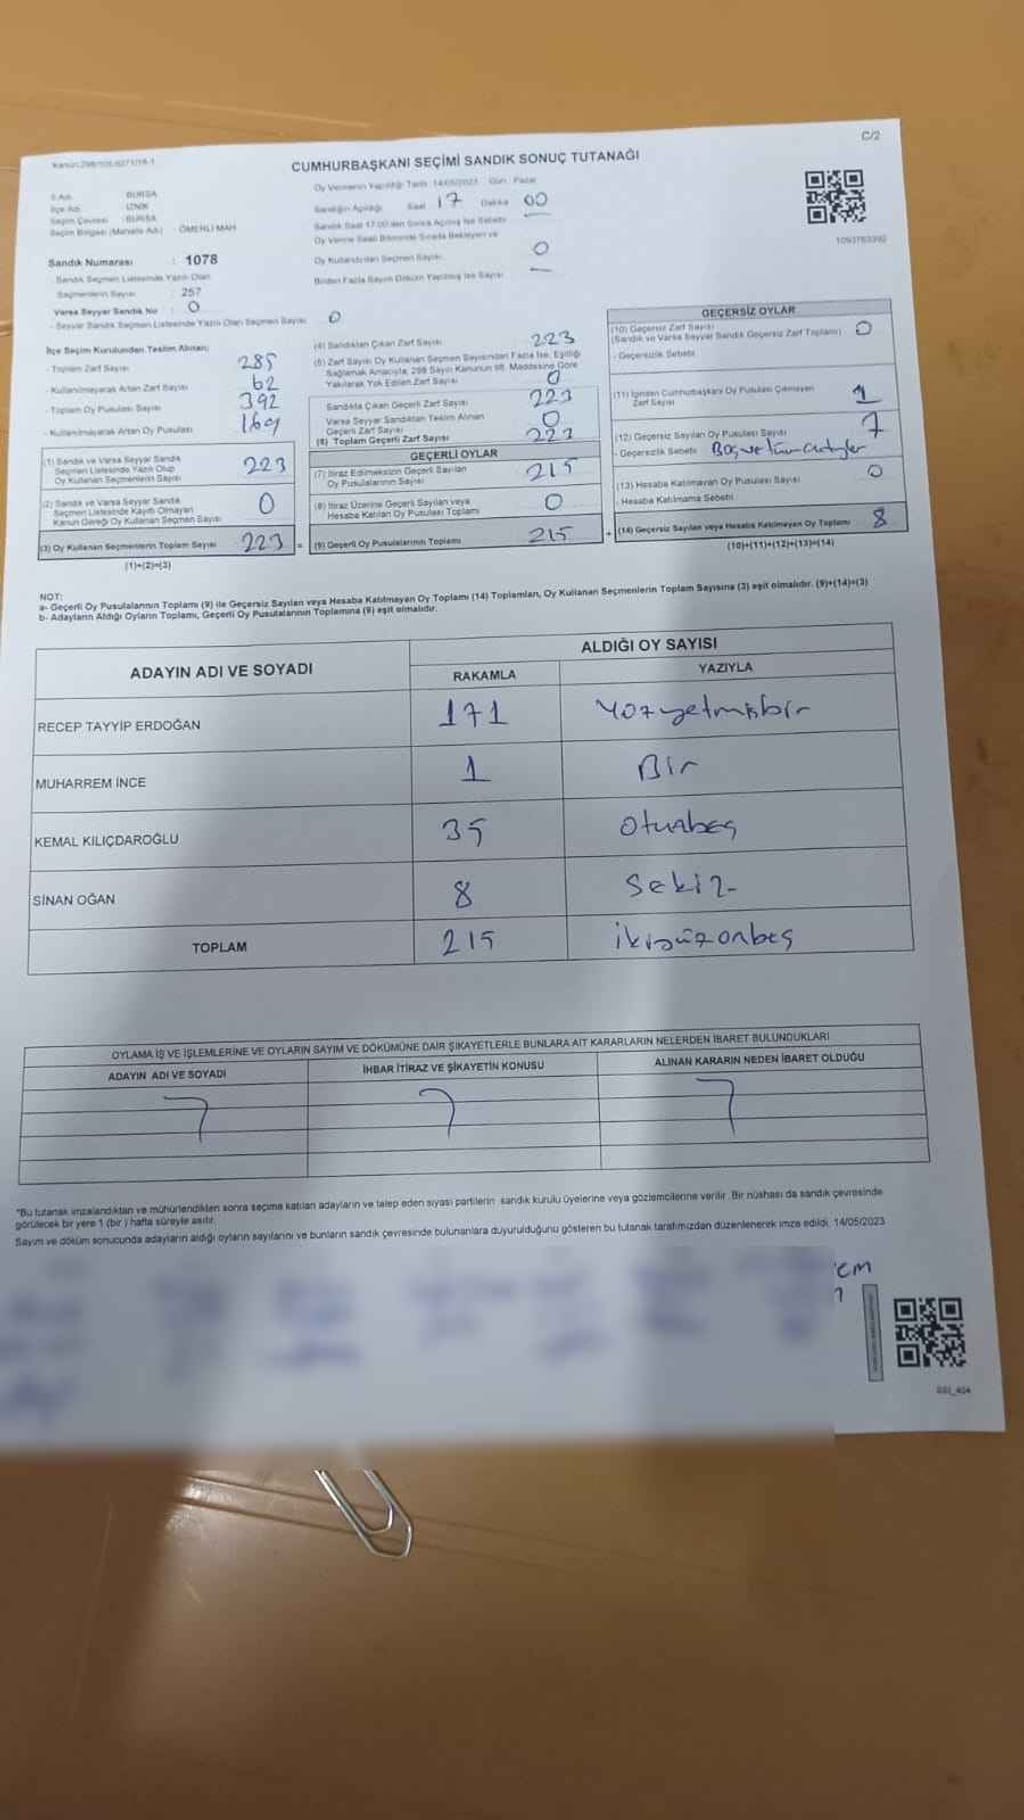 C/2
CUMHURBAŞKANI SEÇİMİ SANDIK SONUÇ TUTANAĞI
Oy Vermenin Yapıldığı Tarih 14/05/2023 Gün : Pazar
Sandığın Açıldığı Saat 17 Dakika 00
İli Adı BURSA
İlçe Adı İZNİK
Seçim Çevresi : BURSA
Seçim Bölgesi (Mahalle Adı) : ÖMERLİ MAH
Sandık Saat 17:00'den Sonra Açılmış İse Sebebi
Oy Verme Saati Bitiminde Sırada Bekleyen ve
Oy Kullandırılan Seçmen Sayısı 0
Birden Fazla Sayım Döküm Yapılmış İse Sayısı
1093763392
Sandık Numarası : 1078
Sandık Seçmen Listesinde Yazılı Olan
Seçmenlerin Sayısı : 257
Varsa Seyyar Sandık No : 0
- Seyyar Sandık Seçmen Listesinde Yazılı Olan Seçmen Sayısı 0
İlçe Seçim Kurulundan Teslim Alınan;
- Toplam Zarf Sayısı 285
- Kullanılmayarak Artan Zarf Sayısı 62
- Toplam Oy Pusulası Sayısı 392
- Kullanılmayarak Artan Oy Pusulası 169
(1) Sandık ve Varsa Seyyar Sandık
Seçmen Listesinde Yazılı Olup
Oy Kullanan Seçmenlerin Sayısı 223
(2) Sandık ve Varsa Seyyar Sandık
Seçmen Listesinde Kayıtlı Olmayan
Kanun Gereği Oy Kullanan Seçmen Sayısı 0
(3) Oy Kullanan Seçmenlerin Toplam Sayısı 223 =
(1)+(2)=(3)
(4) Sandıktan Çıkan Zarf Sayısı 223
(5) Zarf Sayısı Oy Kullanan Seçmen Sayısından Fazla İse, Eşitliği
Sağlamak Amacıyla, 298 Sayılı Kanunun 98. Maddesine Göre
Yakılarak Yok Edilen Zarf Sayısı 0
Sandıkta Çıkan Geçerli Zarf Sayısı 223
Varsa Seyyar Sandıktan Teslim Alınan
Geçerli Zarf Sayısı 0
(6) Toplam Geçerli Zarf Sayısı 223
GEÇERLİ OYLAR
(7) İtiraz Edilmeksizin Geçerli Sayılan
Oy Pusulalarının Sayısı 215
(8) İtiraz Üzerine Geçerli Sayılan veya
Hesaba Katılan Oy Pusulası Toplamı 0
(9) Geçerli Oy Pusulalarının Toplamı 215 +
GEÇERSİZ OYLAR
(10) Geçersiz Zarf Sayısı
(Sandık ve Varsa Seyyar Sandık Geçersiz Zarf Toplamı) 0
- Geçersizlik Sebebi
(11) İçinden Cumhurbaşkanı Oy Pusulası Çıkmayan
Zarf Sayısı 1
(12) Geçersiz Sayılan Oy Pusulası Sayısı 7
- Geçersizlik Sebebi Boş ve tüm
(13) Hesaba Katılmayan Oy Pusulası Sayısı 0
- Hesaba Katılmama Sebebi
(14) Geçersiz Sayılan veya Hesaba Katılmayan Oy Toplamı 8
(10)+(11)+(12)+(13)=(14)
NOT:
a- Geçerli Oy Pusulalarının Toplamı (9) ile Geçersiz Sayılan veya Hesaba Katılmayan Oy Toplamı (14) Toplamları, Oy Kullanan Seçmenlerin Toplam Sayısına (3) eşit olmalıdır. (9)+(14)=(3)
b- Adayların Aldığı Oyların Toplamı, Geçerli Oy Pusulalarının Toplamına (9) eşit olmalıdır.
ADAYIN ADI VE SOYADI
ALDIĞI OY SAYISI
RAKAMLA YAZIYLA
RECEP TAYYİP ERDOĞAN 171 Yüzyetmişbir
MUHARREM İNCE 1 Bir
KEMAL KILIÇDAROĞLU 35 otuzbeş
SİNAN OĞAN 8 Sekiz
TOPLAM 215 ikiyüzonbeş
OYLAMA İŞ VE İŞLEMLERİNE VE OYLARIN SAYIM VE DÖKÜMÜNE DAİR ŞİKAYETLERLE BUNLARA AİT KARARLARIN NELERDEN İBARET BULUNDUKLARI
ADAYIN ADI VE SOYADI İHBAR İTİRAZ VE ŞİKAYETİN KONUSU ALINAN KARARIN NEDEN İBARET OLDUĞU
*Bu tutanak imzalandıktan ve mühürlendikten sonra seçime katılan adayların ve talep eden siyasi partilerin sandık kurulu üyelerine veya gözlemcilerine verilir. Bir nüshası da sandık çevresinde
görülecek bir yere 1 (bir ) hafta süreyle asılır.
Sayım ve döküm sonucunda adayların aldığı oyların sayılarını ve bunların sandık çevresinde bulunanlara duyurulduğunu gösteren bu tutanak tarafımızdan düzenlenerek imza edildi. 14/05/2023